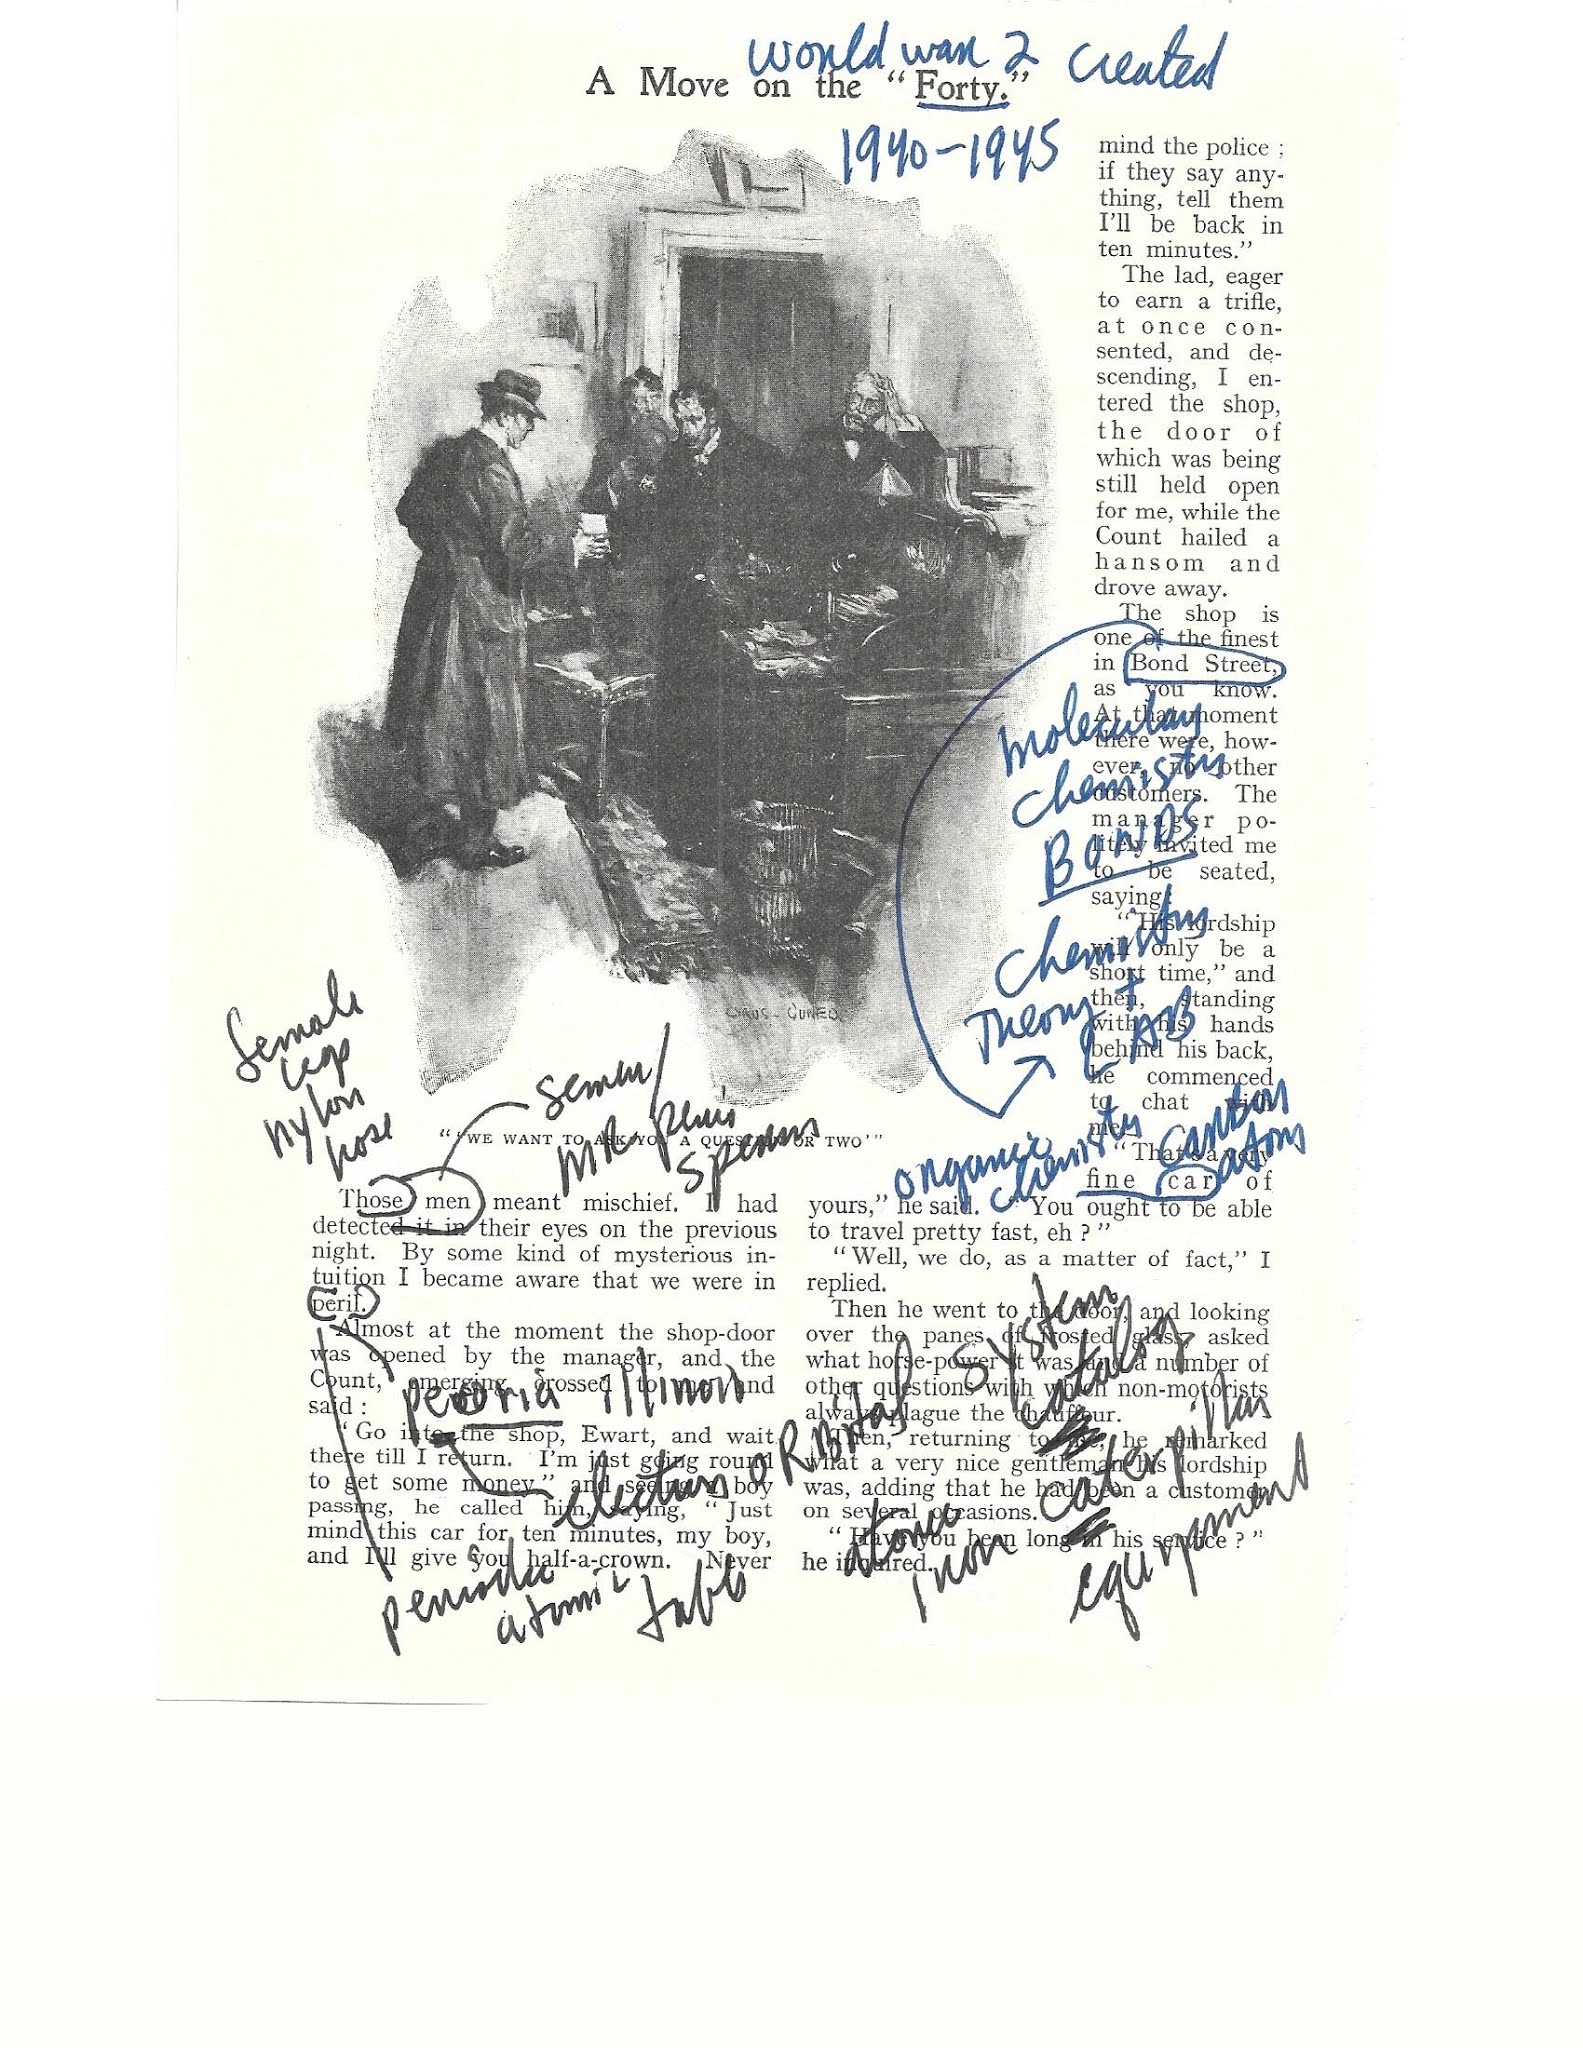 World war 2 created
A Move on the "Forty."
1940-1945
mind the police ;
if they say any-
thing, tell them
I'll be back in
ten minutes."
The lad, eager
to earn a trifle,
at once con-
sented, and de-
scending, I en-
tered the shop,
the door of
which was being
still held open
for me, while the
Count hailed a
hansom and
drove away.
The shop is
one of the finest
in Bond Street,
as you know.
At that moment
there were, how-
ever, no other
customers. The
manager po-
litely invited me
to be seated,
saying:
"His lordship
will only be a
short time," and
then, standing
with his hands
behind his back,
he commenced
to chat with
me.
"That's a very
fine car of
molecular
chemistry
BONDS
chemistry
Theory +
LAB
organic
chemistry
carbon
atoms
CYRUS CUNEO
female
legs
nylon
hose
semen/
MR penis
sperms
"'WE WANT TO ASK YOU A QUESTION OR TWO'"
Those men meant mischief. I had
detected it in their eyes on the previous
night. By some kind of mysterious in-
tuition I became aware that we were in
peril.
Almost at the moment the shop-door
was opened by the manager, and the
Count, emerging, crossed to me and
said :
"Go into the shop, Ewart, and wait
there till I return. I'm just going round
to get some money," and seeing a boy
passing, he called him, saying, "Just
mind this car for ten minutes, my boy,
and I'll give you half-a-crown. Never
peoria Illinois
electrons ORBital system
periodic
atomic
table
yours," he said. "You ought to be able
to travel pretty fast, eh ?"
"Well, we do, as a matter of fact," I
replied.
Then he went to the door, and looking
over the panes of frosted glass, asked
what horse-power it was and a number of
other questions with which non-motorists
always plague the chauffeur.
Then, returning to me, he remarked
what a very nice gentleman his lordship
was, adding that he had been a customer
on several occasions.
"Have you been long in his service ?"
he inquired.
atomic
iron
catalog
caterpillar
equipment